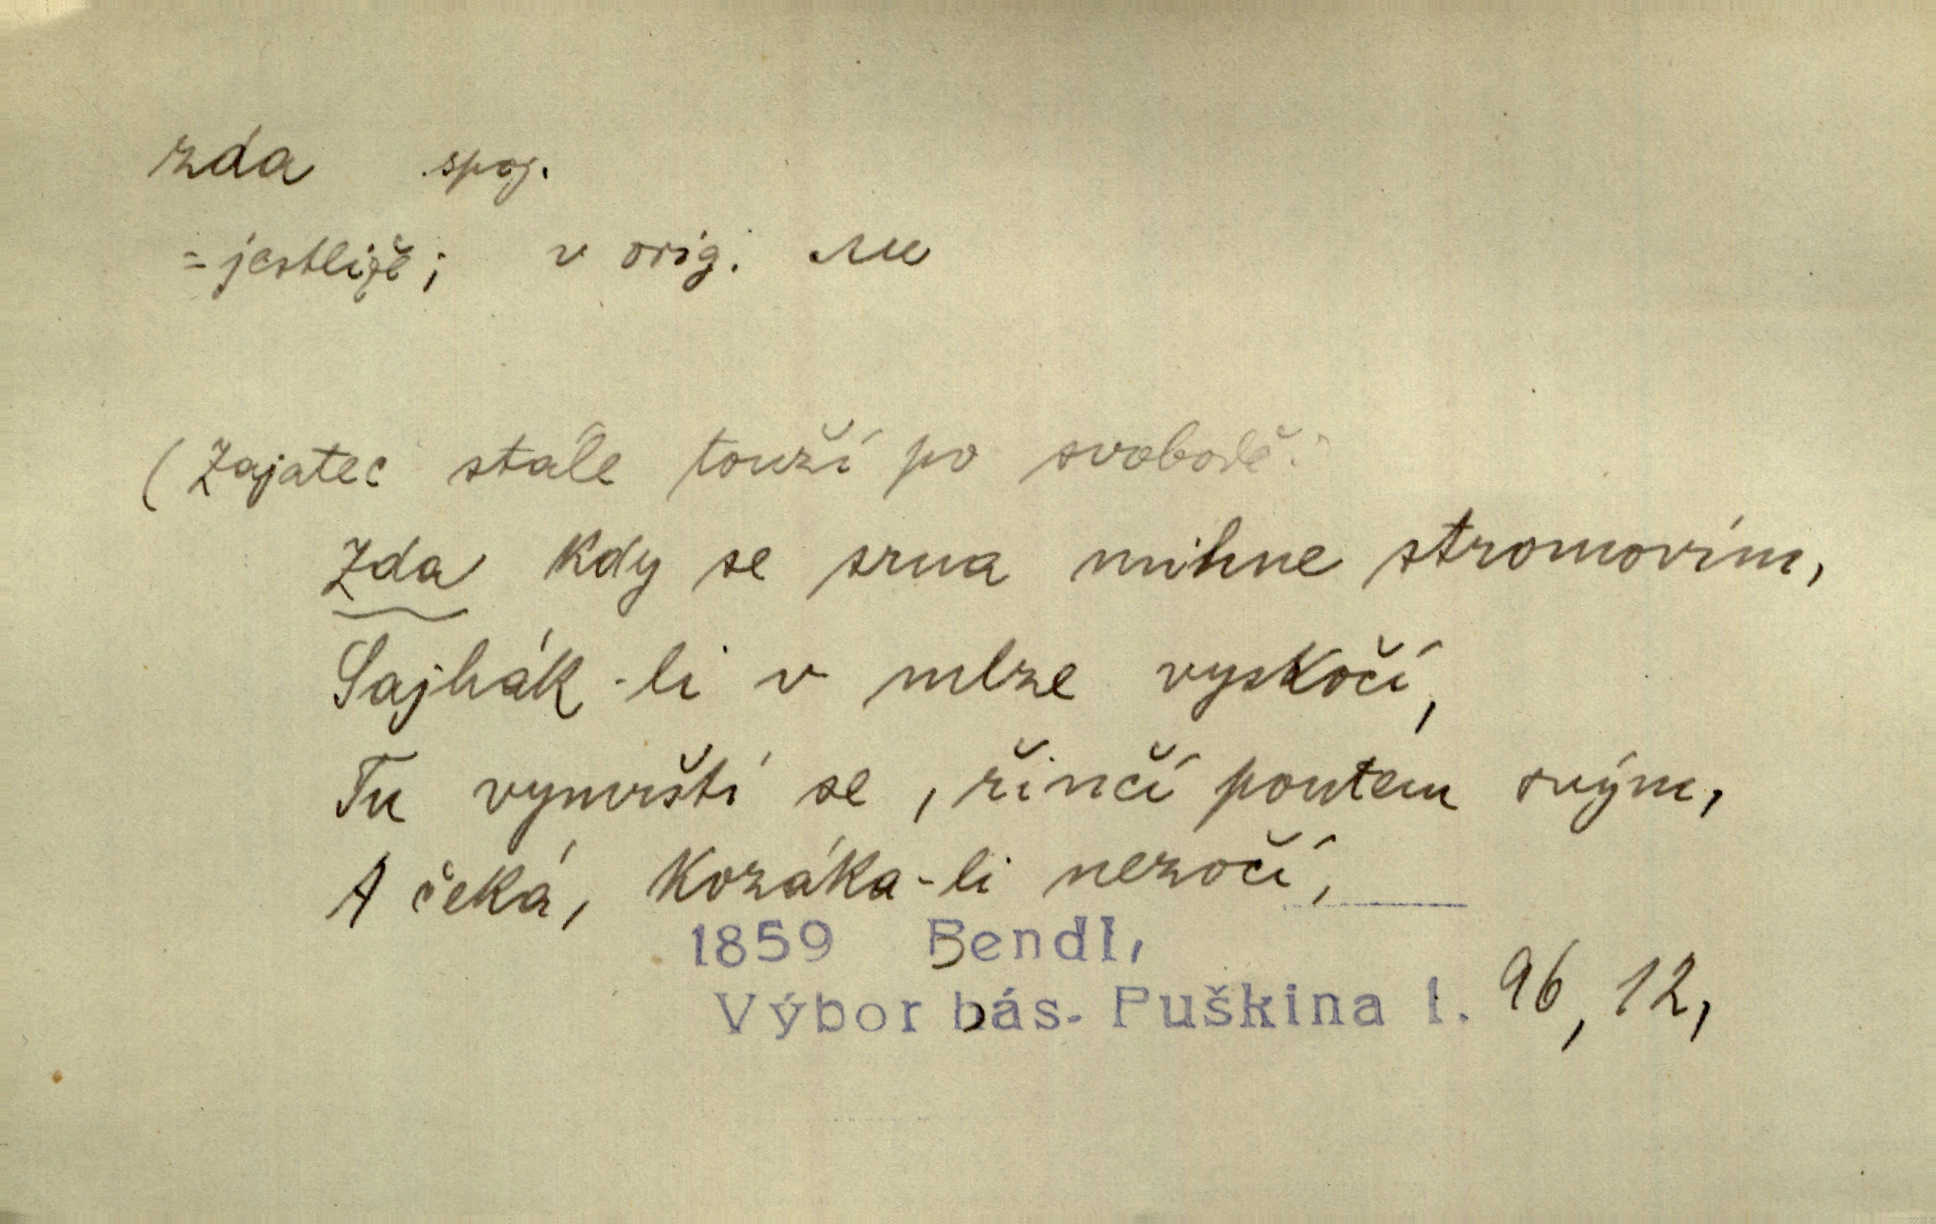 zda spoj.
= jestliže; v orig. ли
(Zajatec stále touží po svobodě:
Zda kdy se srna mihne stromovím,
Sajhák-li v mlze vyskočí,
Tu vymrští se, řinčí poutem svým,
A čeká, Kozáka-li nezočí,
1859 Bendl,
Výbor bás. Puškina I. 96, 12,